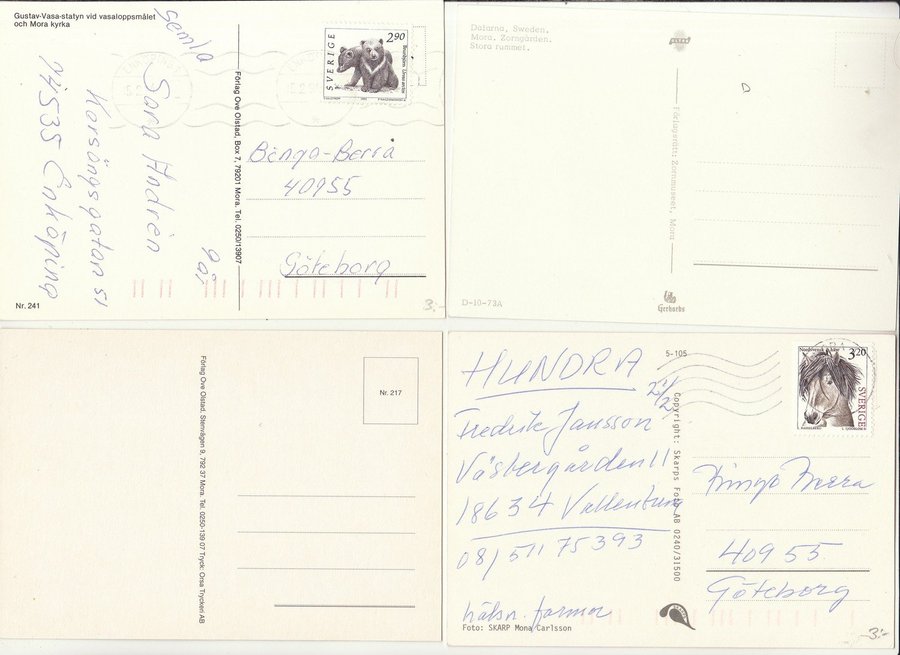 Gustav-Vasa-statyn vid vasaloppsmålet
och Mora kyrka
semla
Sara Andrén
Korsängsgatan 51
74535 Enköping
9 år
Förlag Ove Olstad, Box 7, 79201 Mora. Tel. 0250/13907
SVERIGE
2,90
Binga-Berra
40955
Göteborg
Nr. 241
3:-
Dalarna, Sweden.
Mora. Zorngården.
Stora rummet.
Förlagsrätt: Zornmuseet, Mora
D-10-73A
Gerhards
Förlag Ove Olstad. Stenvägen 9, 792 37 Mora. Tel. 0250-139 07 Tryck: Orsa Tryckeri AB
Nr. 217
HUNDRA
5-105
21/2
Fredrik Jansson
Västergården 11
18634 Vallentuna
08/511 75393
hälsn. farmor
Foto: SKARP Mona Carlsson
Copyright: Skarps Foto AB 0240/31500
3,20
SVERIGE
Bingo Berra
40955
Göteborg
3:-